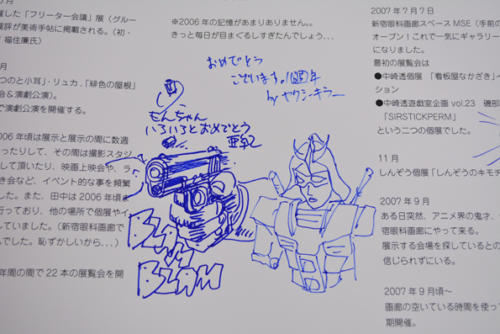 した「フリーター会議」展（グルー
展評が美術手帖に掲載される。（初・
福住廉氏）
つのと小耳」・リュカ.「緋色の屋根」
会＆演劇公演）。
で演劇公演を開催する。
006年頃は展示と展示の間に数週
ったりして、その間は撮影スタジ
して頂いたり、映画上映会や、ラ
き会など、イベント的な事を頻繁
した。また、田中は2006年頃ま
行っており、他の場所で個展やイ
していました。（新宿眼科画廊で
んでした。恥ずかしいから…）
年間の間で22本の展覧会を開
※2006年の記憶があまりありません。。
きっと毎日が目まぐるしすぎたんでしょう…
おめでとう
ございます。
by ヤワシ・キラー
もんちゃん
いろいろとおめでとう
BLAM
BLAM
2007年7月7日
新宿眼科画廊スペースMSE（手前
オープン！これで一気にギャラリー
になりました。
最初の展覧会は
●中崎透個展 「看板屋なかざき」
ション
●中崎透遊戯室企画 vol.23 磯
「SIRSTICKPERM」
という二つの個展でした。
11月
しんぞう個展「しんぞうのキモチ
2007年9月
ある日突然、アニメ界の鬼才、
宿眼科画廊にやって来る。
展示する会場を探しているとの
信じられずにいる。
2007年9月頃〜
画廊の空いている時間を使って
期開催。